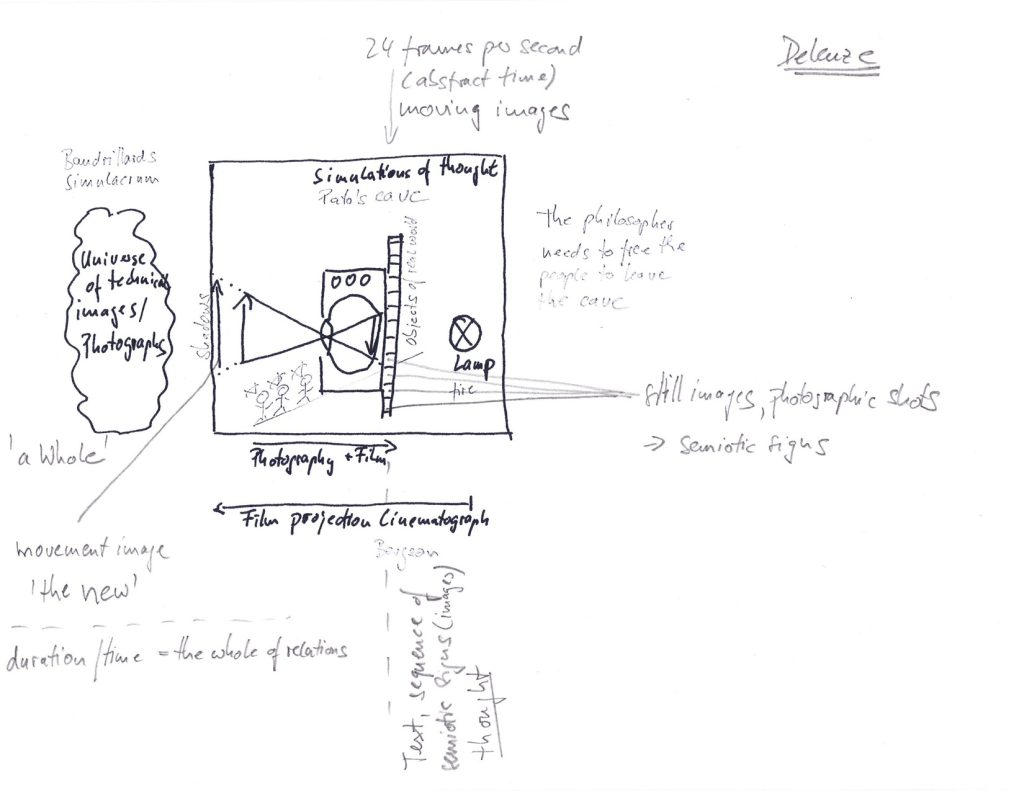 24 frames per second
(abstract time)
moving images
Deleuze
Baudrillards
Simulacrum
Simulations of thought
Plato's cave
Universe
of technical
images/
Photographs
Shadows
Objects of real world
Lamp
fire
The philosopher
needs to free the
people to leave
the cave
still images, photographic shots
→ semiotic signs
'a whole'
Photography + Film
Film projection Cinematograph
Bergson
movement image
'the new'
duration/time = the whole of relations
Text, sequence of
semiotic signs (images)
thought